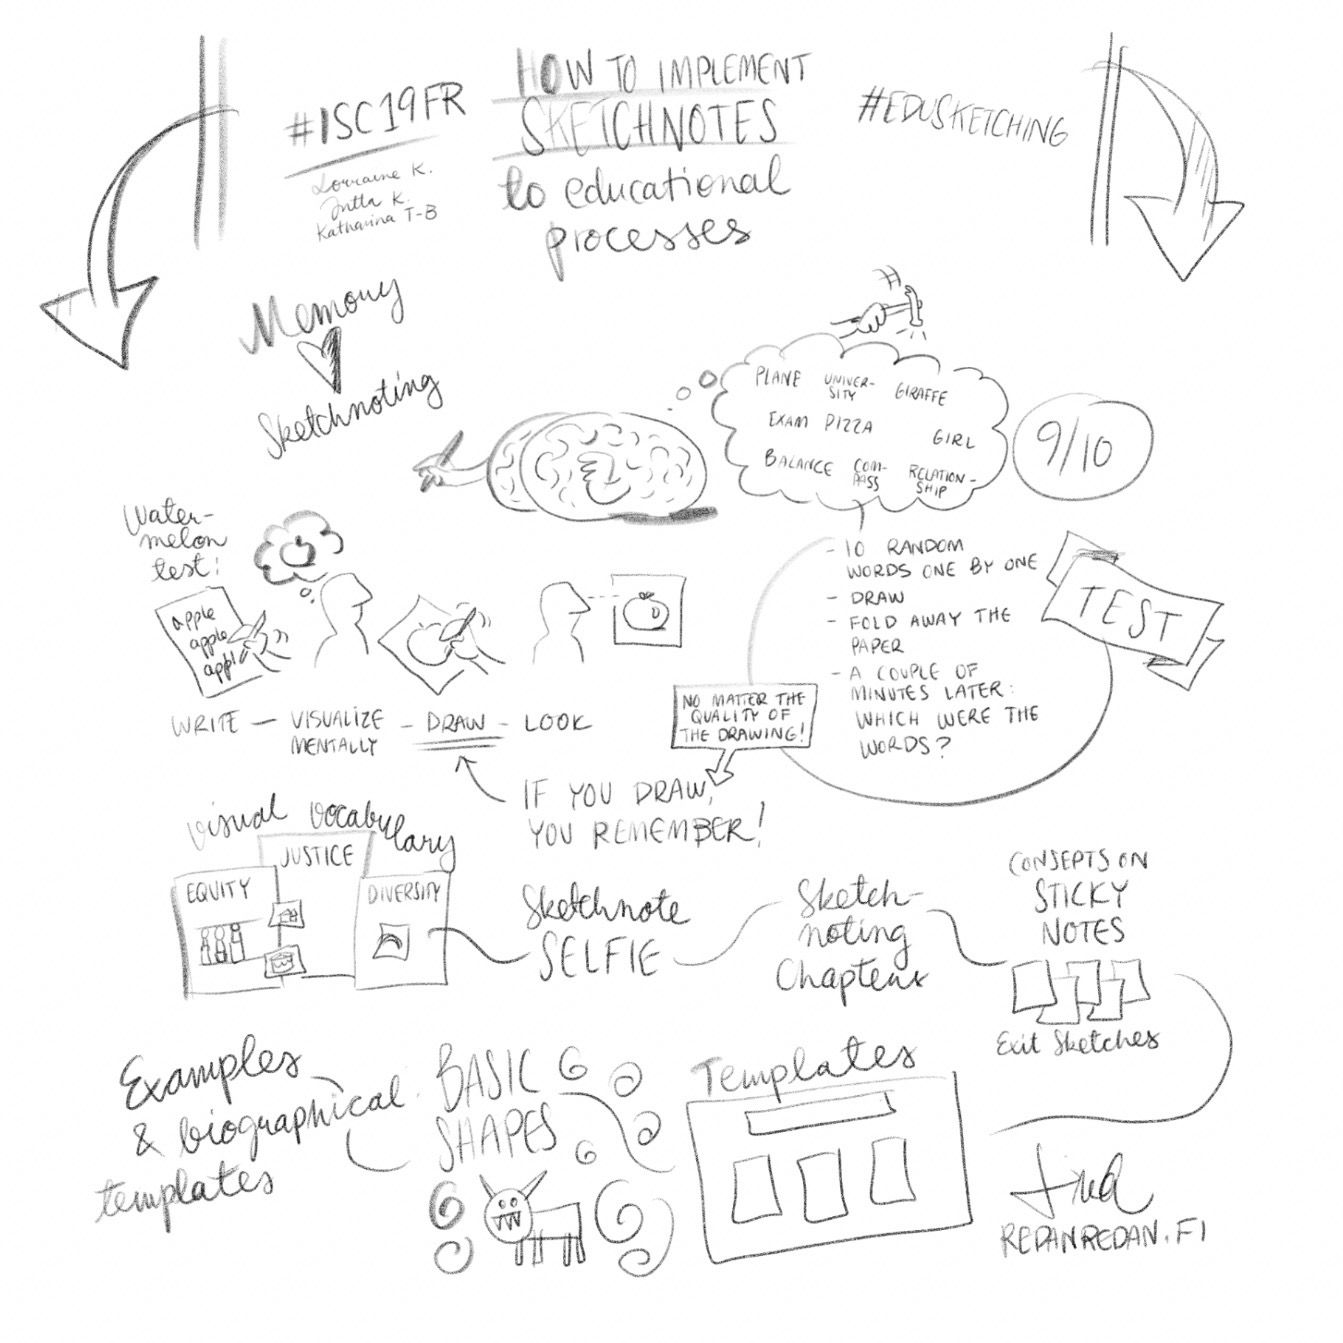 #ISC19FR
Lorraine K.
Jutta K.
Katharina T-B
HOW TO IMPLEMENT
SKETCHNOTES
to educational
processes
#EDUSKETCHING
Memory
Sketchnoting
PLANE
UNIVER-
SITY
GIRAFFE
EXAM
PIZZA
GIRL
BALANCE
COM-
PASS
RELATION-
SHIP
9/10
Water-
melon
test:
apple
apple
appl
WRITE - VISUALIZE
MENTALLY
- DRAW - LOOK
- 10 RANDOM
WORDS ONE BY ONE
- DRAW
- FOLD AWAY THE
PAPER
- A COUPLE OF
MINUTES LATER:
WHICH WERE THE
WORDS?
TEST
NO MATTER THE
QUALITY OF
THE DRAWING!
IF YOU DRAW,
YOU REMEMBER!
visual vocabulary
JUSTICE
EQUITY
DIVERSITY
Sketchnote
SELFIE
Sketch-
noting
Chapters
CONSEPTS ON
STICKY
NOTES
Exit Sketches
Examples
& biographical
templates
BASIC
SHAPES
Templates
REDANREDAN.FI